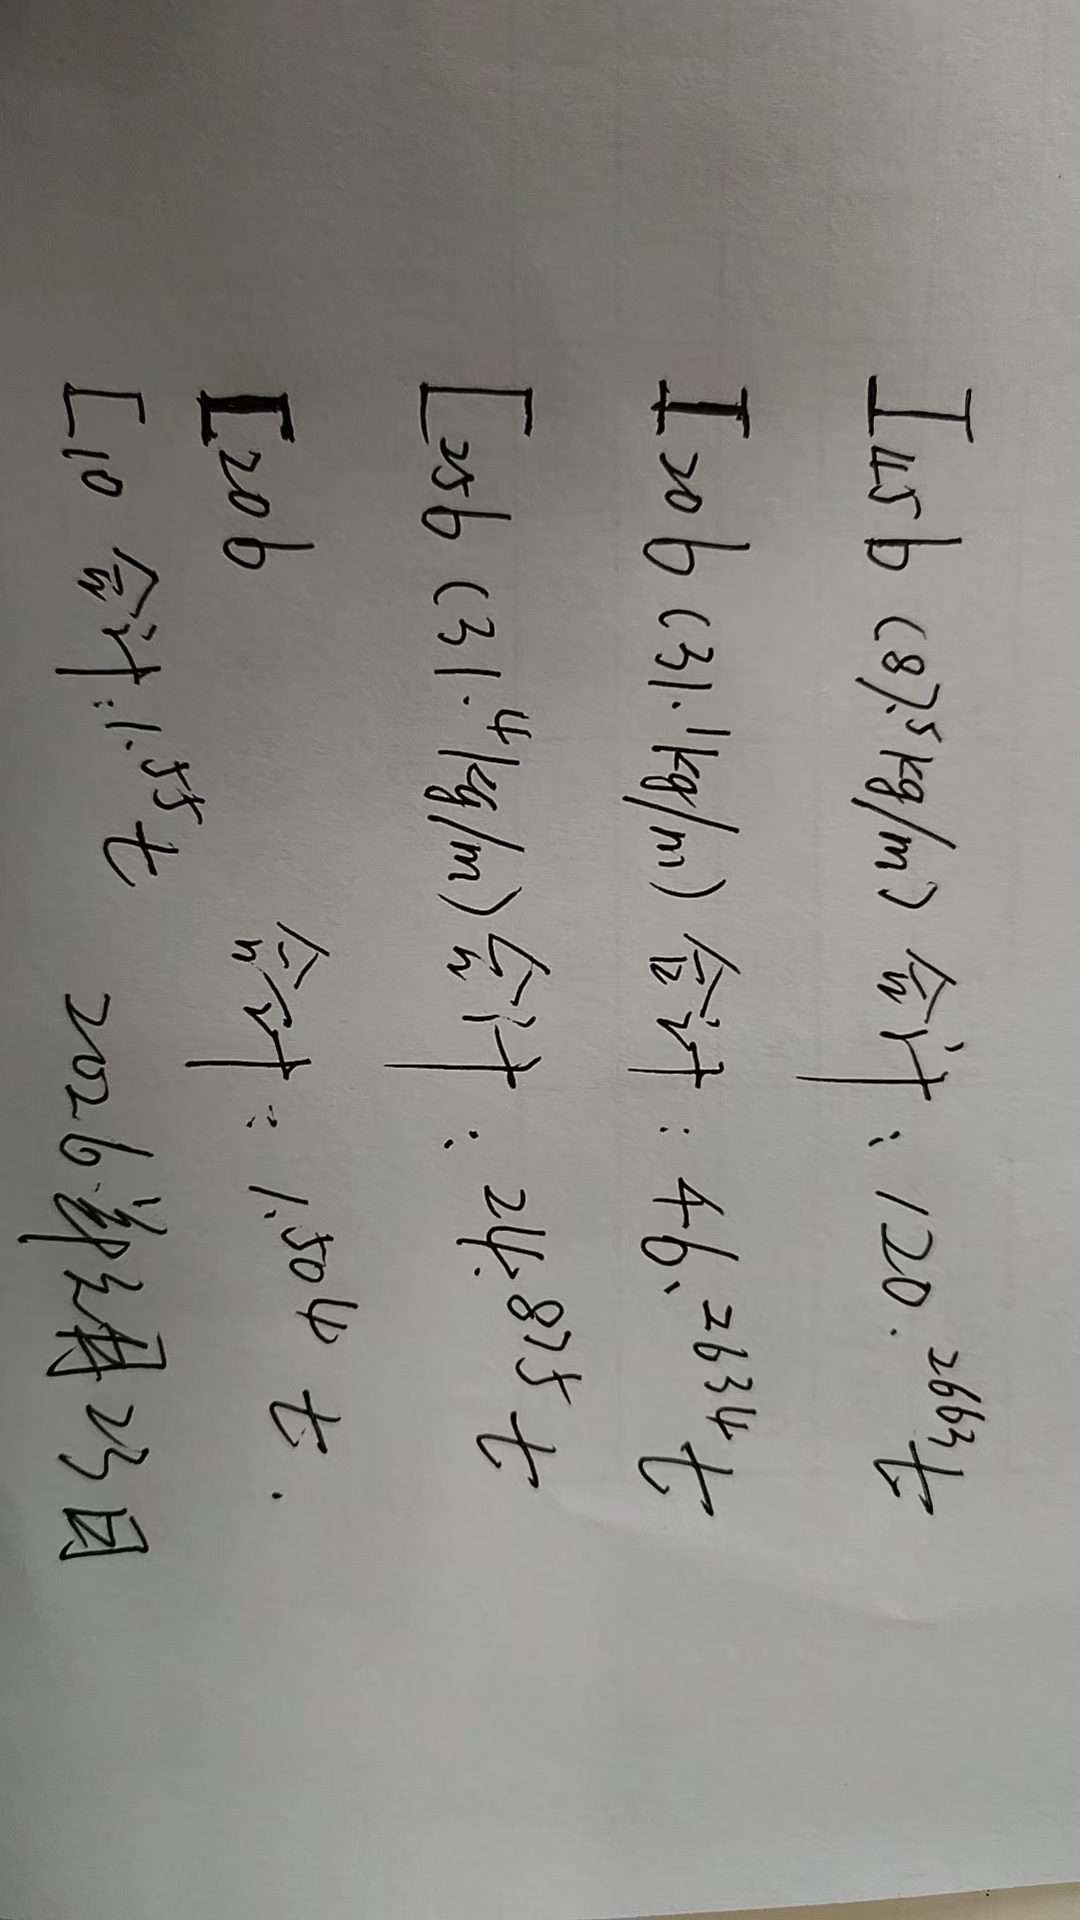 I45b (87.5kg/m) 合计: 120.2663t
I20b (31.1kg/m) 合计: 46.2634t
[25b (31.4kg/m) 合计: 24.875t
[20b 合计: 1.504t.
[10 合计: 1.55t 2026年3月23日